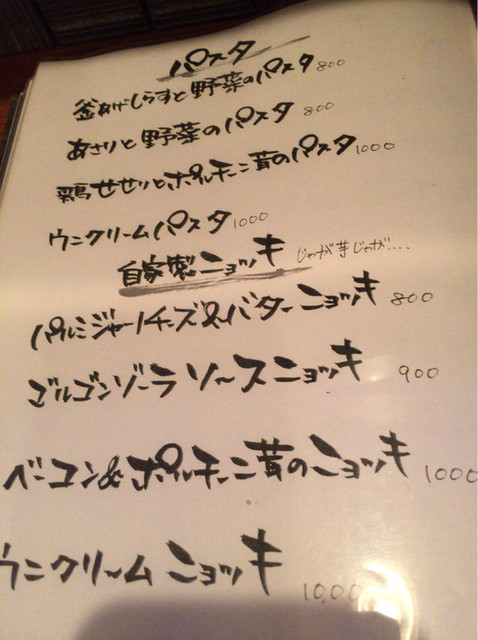 パスタ
釜あげしらすと野菜のパスタ 800
あさりと野菜のパスタ 800
鶏せせりとポルチーニ茸のパスタ 1000
ウニクリームパスタ 1000
自家製ニョッキ じゃが芋じゃが....
パルミジャーノチーズ&バターニョッキ 800
ゴルゴンゾーラソースニョッキ 900
ベーコン&ポルチーニ茸のニョッキ 1000
ウニクリームニョッキ 1000